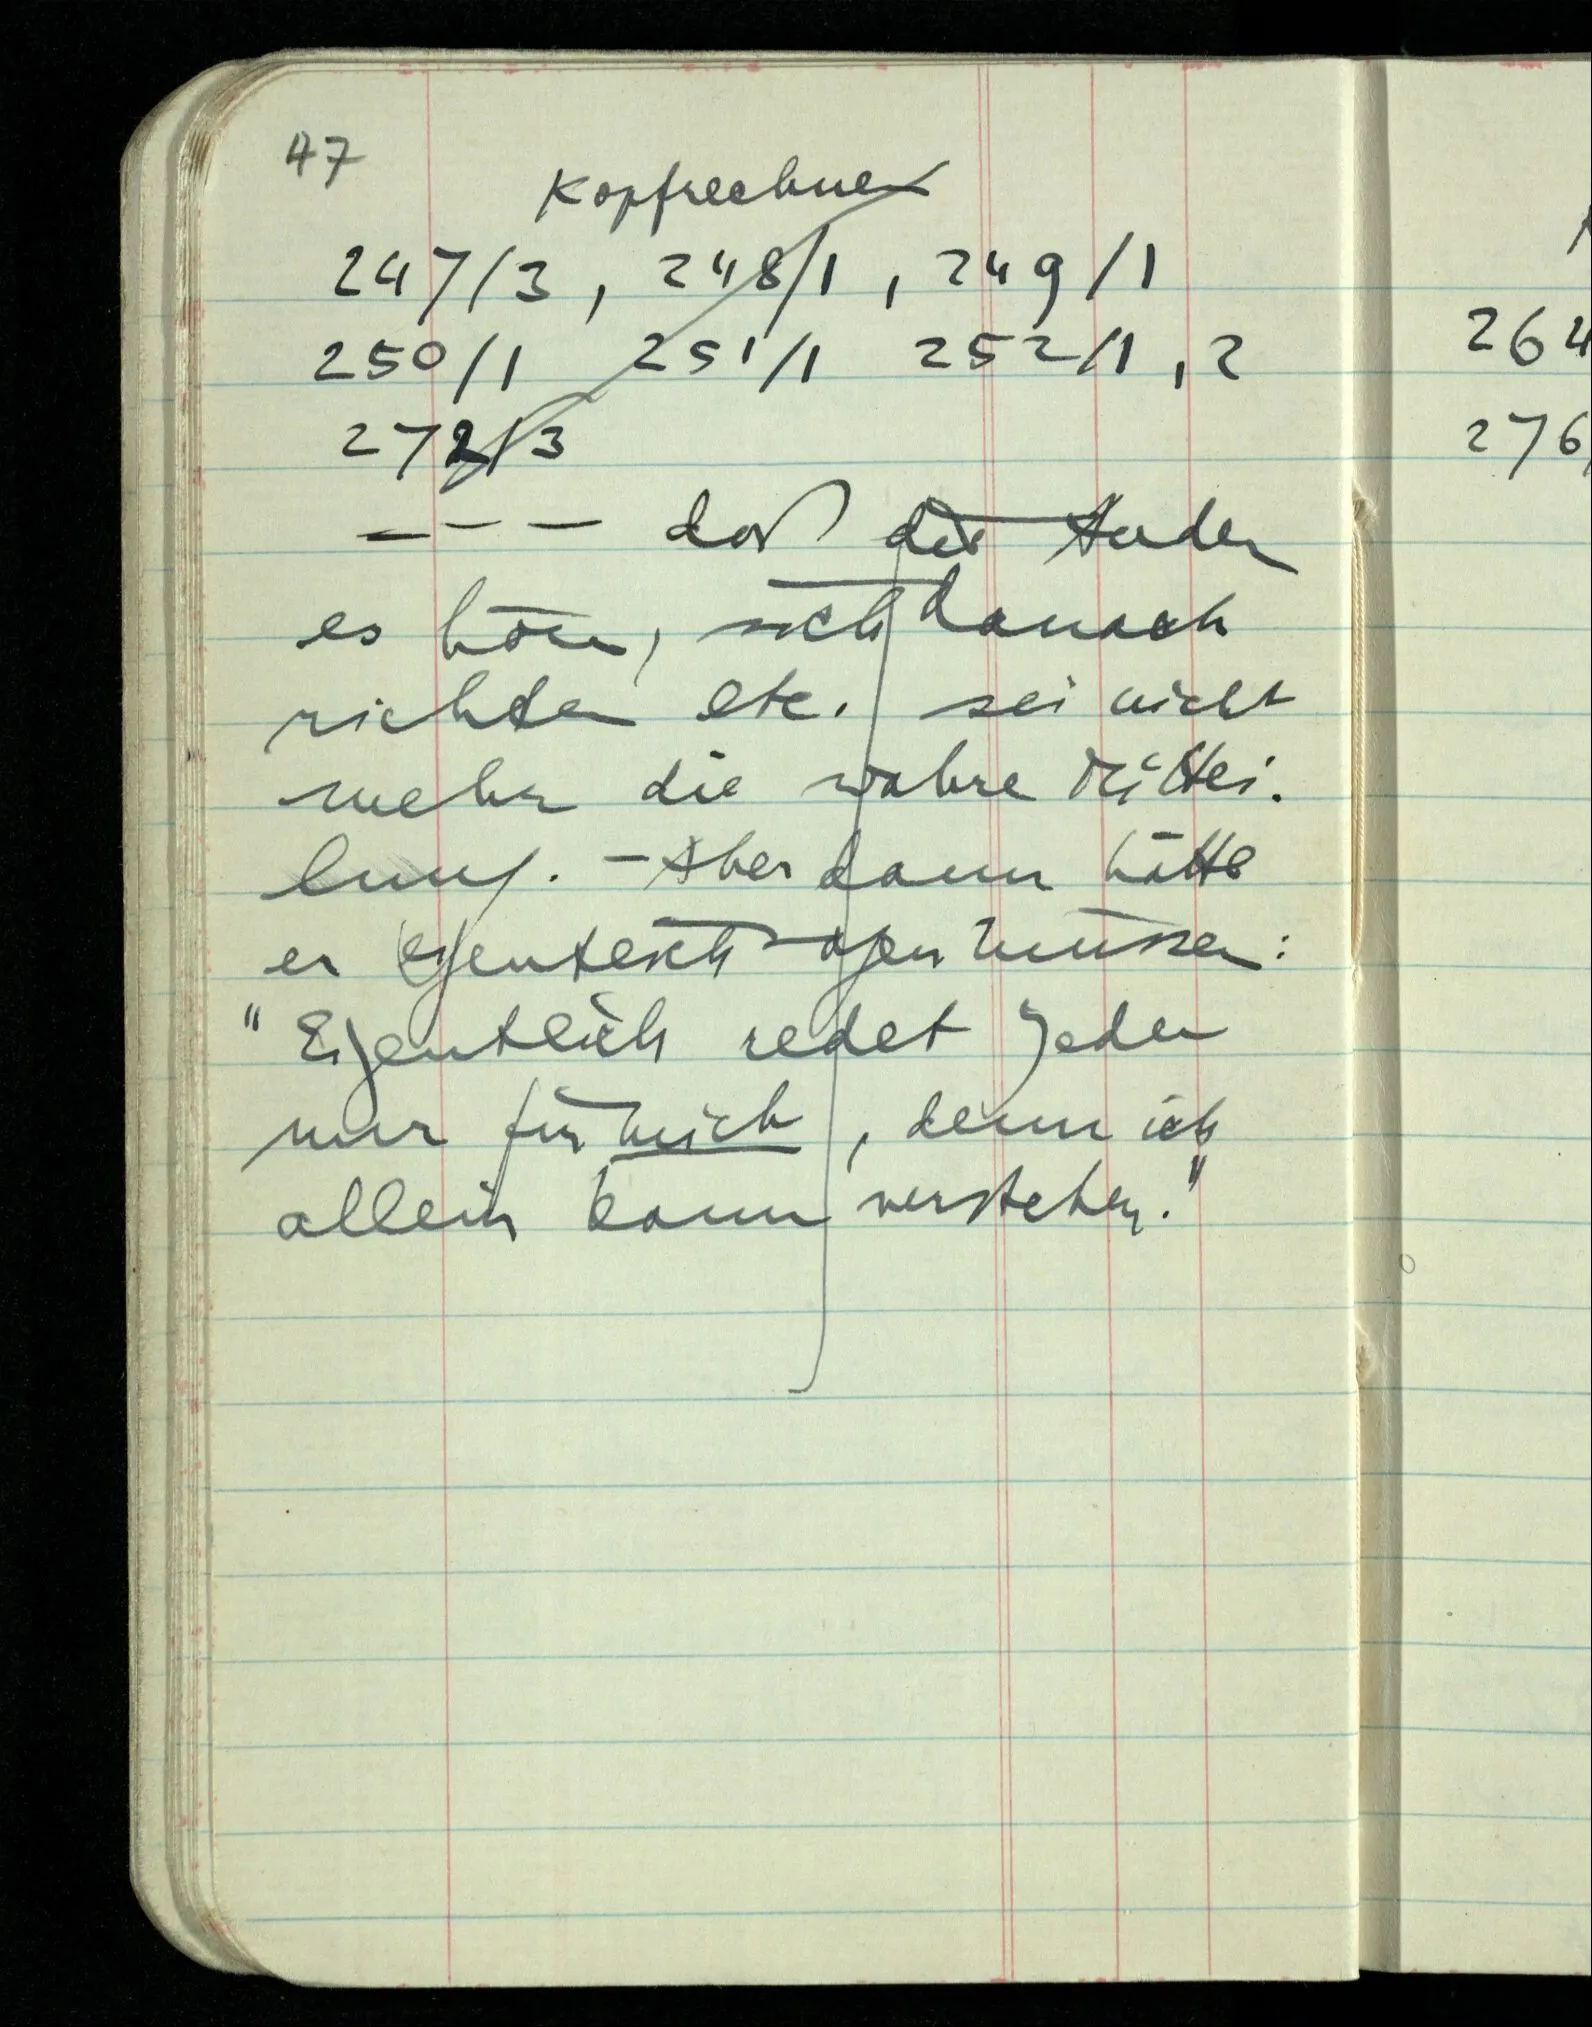 47
Kopfrechnen
247/3, 248/1, 249/1
250/1 251/1 252/1, 2
272/3
--- daß der Andere
es höre, sich danach
richten etc. sei nicht
mehr die wahre Mittei-
lung. - Aber dann hätte
er eigentlich sagen müssen:
"Eigentlich redet Jeder
nur für mich, denn ich
allein kann verstehen."
264
276/